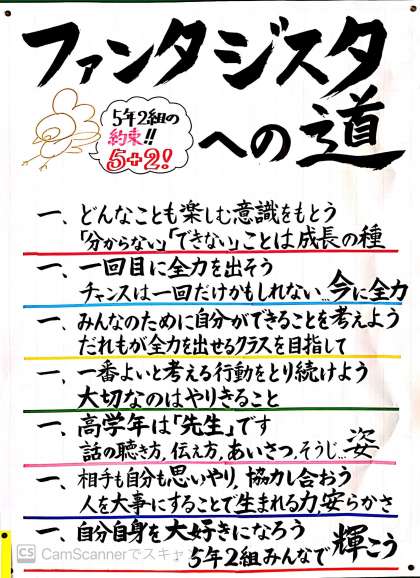 ファンタジスタ
への道
5年2組の
約束!!
5+2!
一、どんなことも楽しむ意識をもとう
「分からない」「できない」ことは成長の種
一、一回目に全力を出そう
チャンスは一回だけかもしれない…今に全力
一、みんなのために自分ができることを考えよう
だれもが全力を出せるクラスを目指して
一、一番よいと考える行動をとり続けよう
大切なのはやりきること
一、高学年は「先生」です
話の聴き方、伝え方、あいさつ、そうじ…姿
一、相手も自分も思いやり、協力し合おう
人を大事にすることで生まれる力、安らかさ
一、自分自身を大好きになろう
5年2組みんなで輝こう
CS CamScannerでスキャ